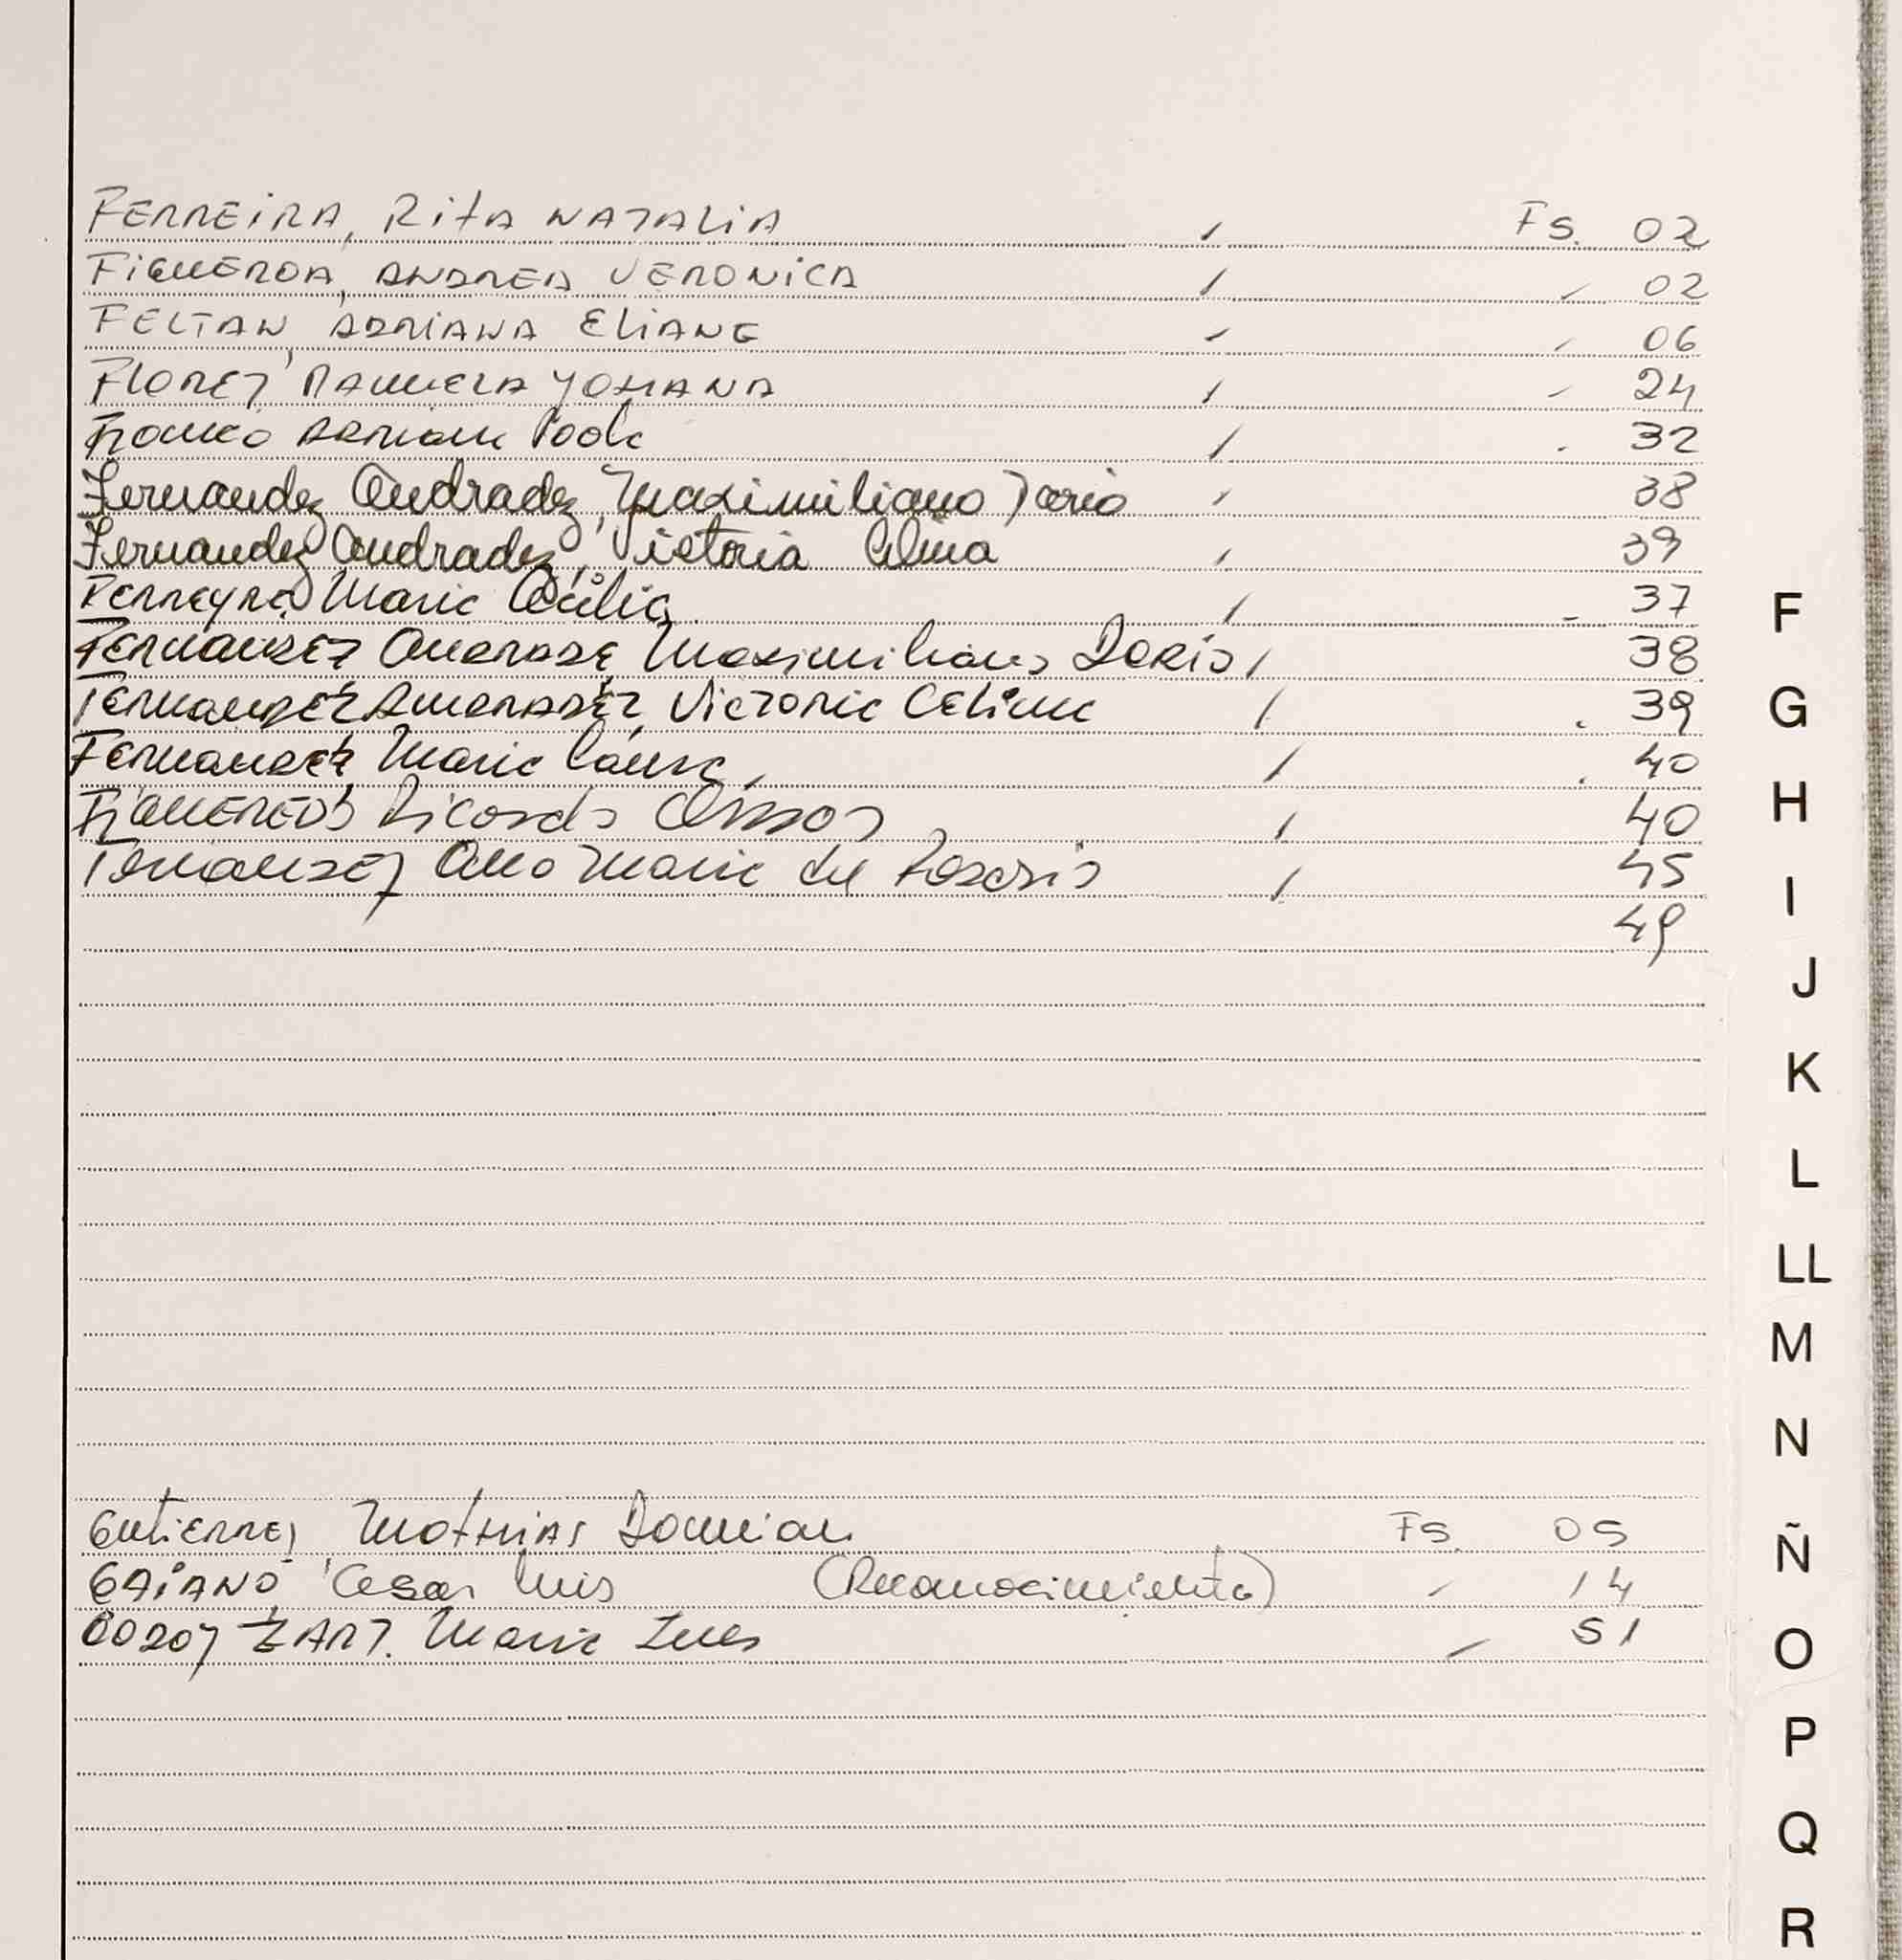 FERREIRA, Rita NATALIA / Fs. 02
FIGUEROA, ANDREA VERONICA / - 02
FELTAN, ADRIANA ELIANE / - 06
FLOREZ, MANUELA YOHANA / - 24
Franco Adriana Paola / - 32
Fernandez Andradez, Maximiliano Dario / 38
Fernandez Andradez, Victoria Celina / 39
Ferreyra, Maria Cecilia / - 37
F
Fernandez Andrade, Maximiliano Dario / 38
Fernandez Andradez, Victoria Celina / . 39
G
Fernandez Maria Laura, / . 40
H
Ricardo / 40
Fernandez Ana Maria del Rosario / 45
I
49
J
K
L
LL
M
N
Gutierrez, Mathias Damian Fs. 05
Ñ
GAIANO, Cesar Luis (Reconocimiento) - 14
Maria Ines - 51
O
P
Q
R